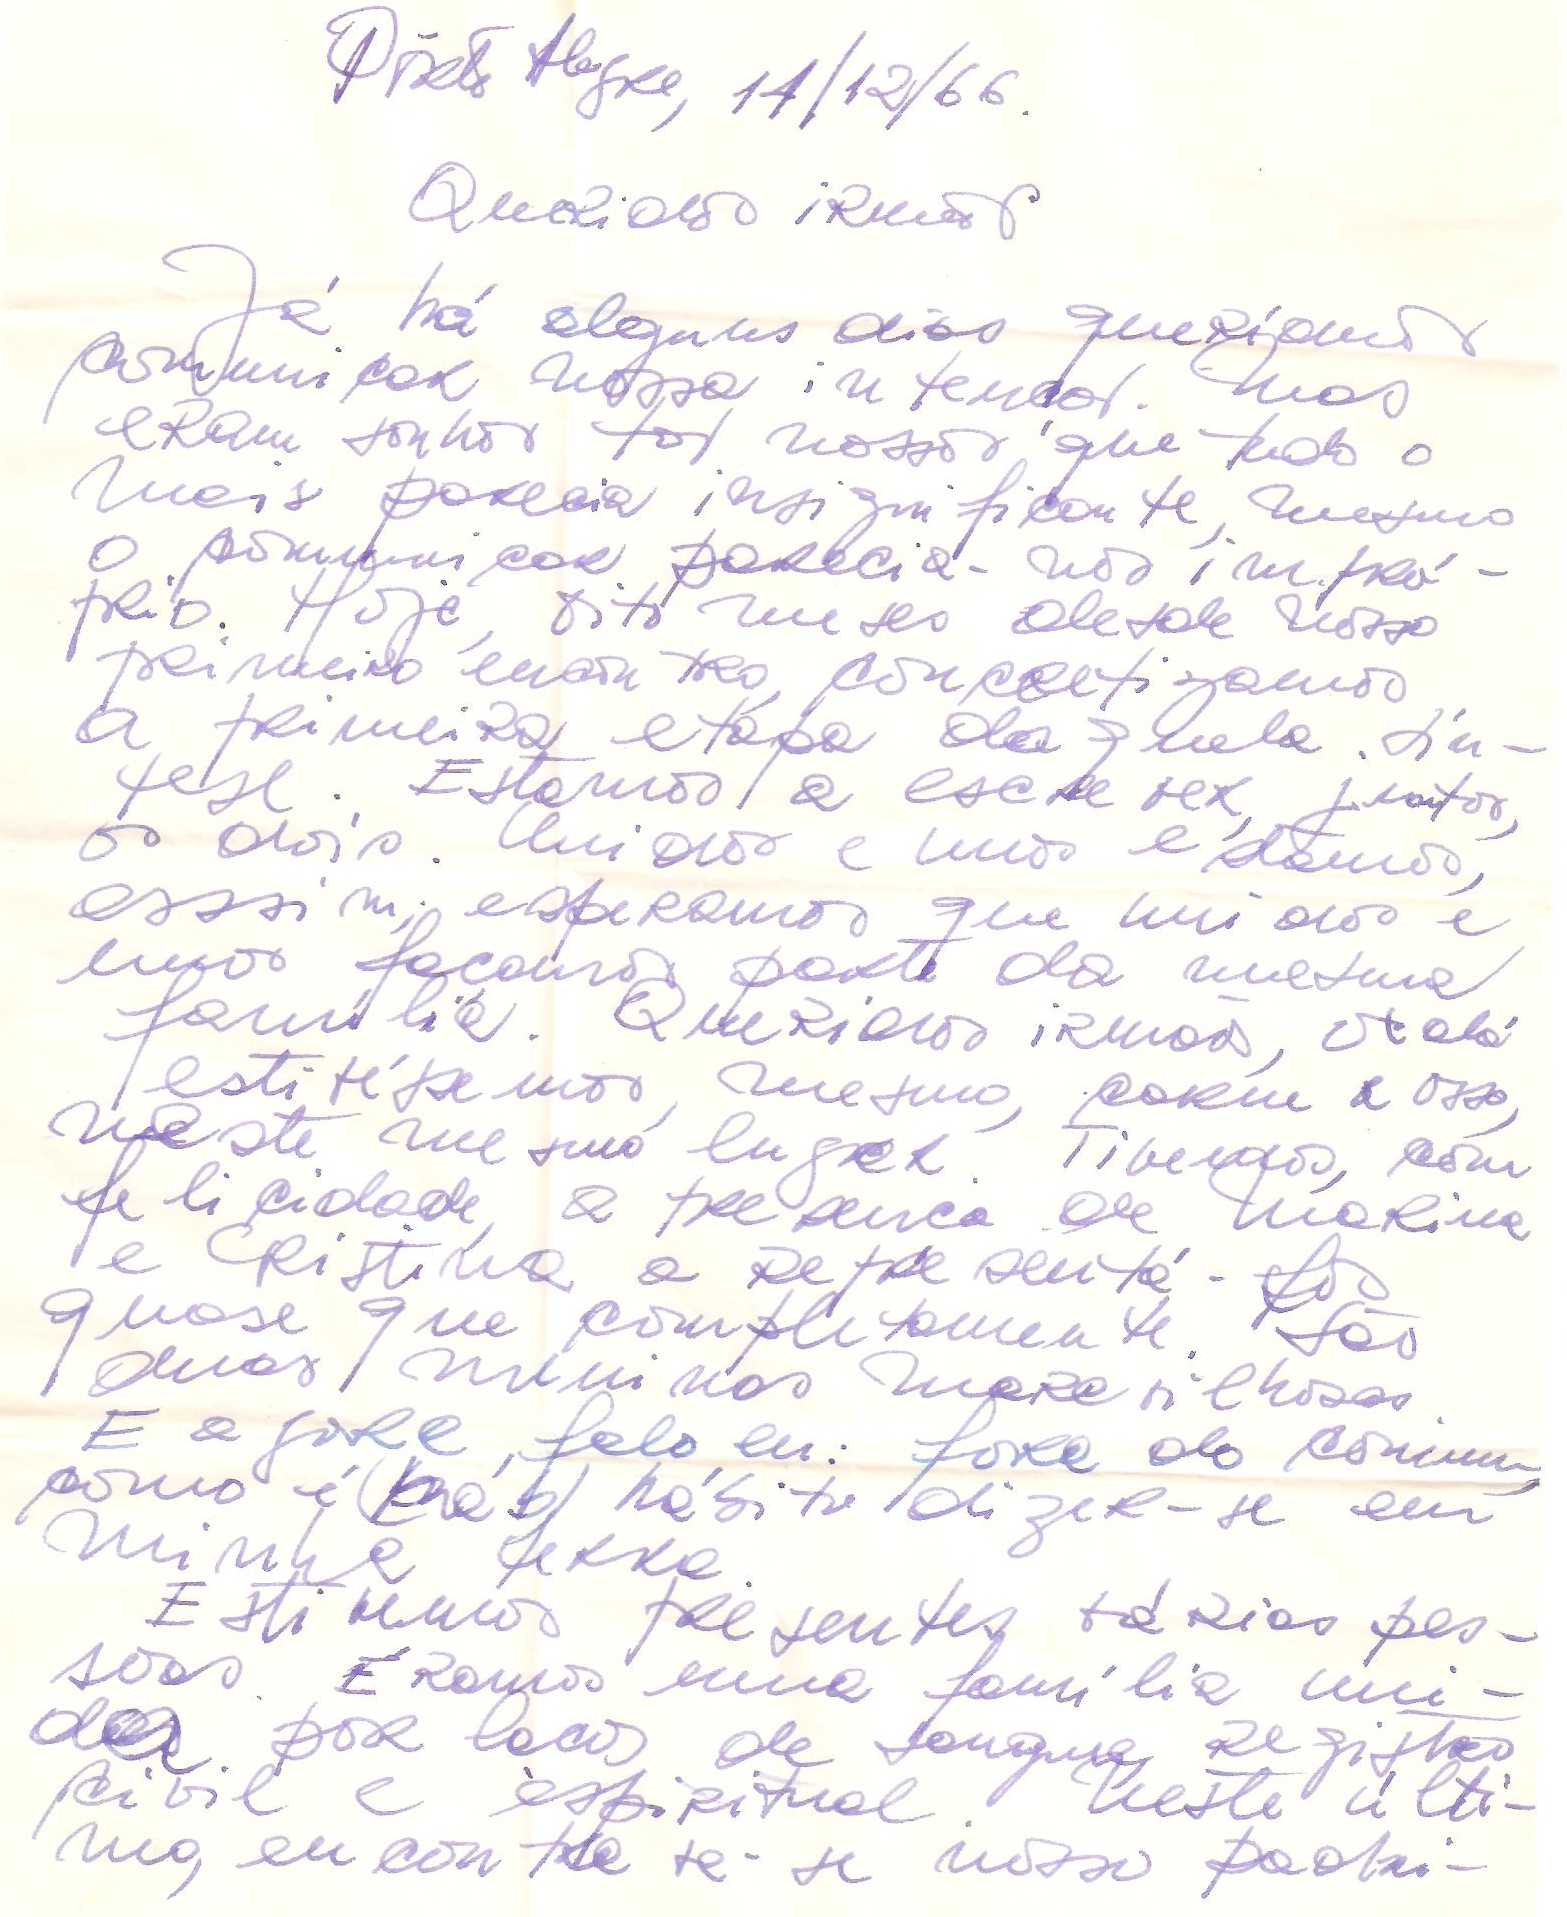 Pôrto Alegre, 14/12/66.
Queridos irmãos
Já há alguns dias queríamos
comunicar nossa intenção. Mas
eram sonhos tão nossos que tudo o
mais parecia insignificante, mesmo
o comunicar parecia-nos impró-
prio. Hoje, oito meses desde nosso
primeiro encontro, concretizamos
a primeira etapa daquela sín-
tese. Estamos a escrever, juntos,
os dois. Unidos e unos estamos,
assim, esperamos que unidos e
unos façamos parte da mesma
família. Queridos irmãos, oxalá
estivéssemos, mesmo, carne e osso,
neste mesmo lugar. Tivemos, com
felicidade, a presença de Marina
e Cristina a representá-los
quase que completamente. São
duas meninas maravilhosas.
E agora, falo eu: fora do comum,
como é hábito dizer-se em
minha terra.
Estivemos presentes várias pes-
soas. Éramos uma família uni-
da por laços de sangue, registro
civil e espiritual. Neste últi-
mo, encontra-se nosso padri-